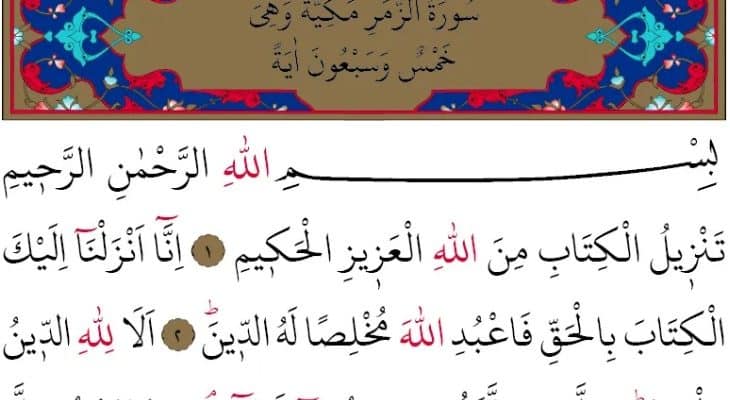 سُورَةُ الزُّمَرِ مَكِّيَّةٌ وَهِيَ
خَمْسٌ وَسَبْعُونَ اٰيَةً
بِسْمِ اللّٰهِ الرَّحْمٰنِ الرَّحٖيمِ
تَنْزٖيلُ الْكِتَابِ مِنَ اللّٰهِ الْعَزٖيزِ الْحَكٖيمِ ﴿١﴾ اِنَّٓا اَنْزَلْنَٓا اِلَيْكَ
الْكِتَابَ بِالْحَقِّ فَاعْبُدِ اللّٰهَ مُخْلِصًا لَهُ الدّٖينَؕ ﴿٢﴾ اَلَا لِلّٰهِ الدّٖينُ